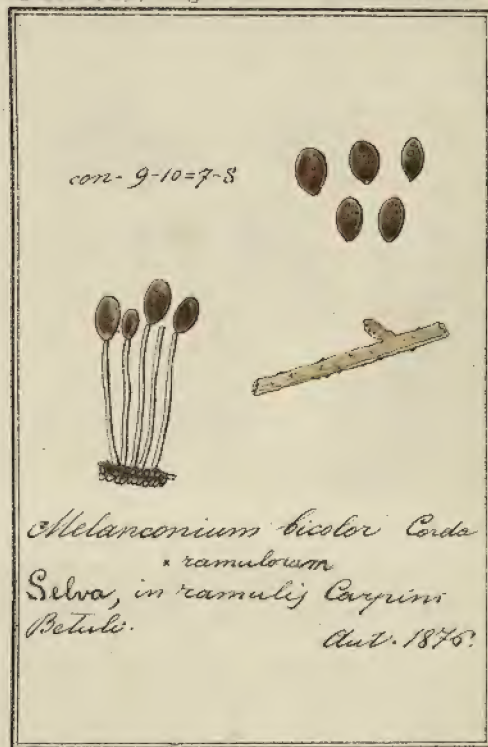 con- 9-10=7-8
Melanconium bicolor Corda
* ramulorum
Selva, in ramulis Carpini
Betuli. Aut. 1876.